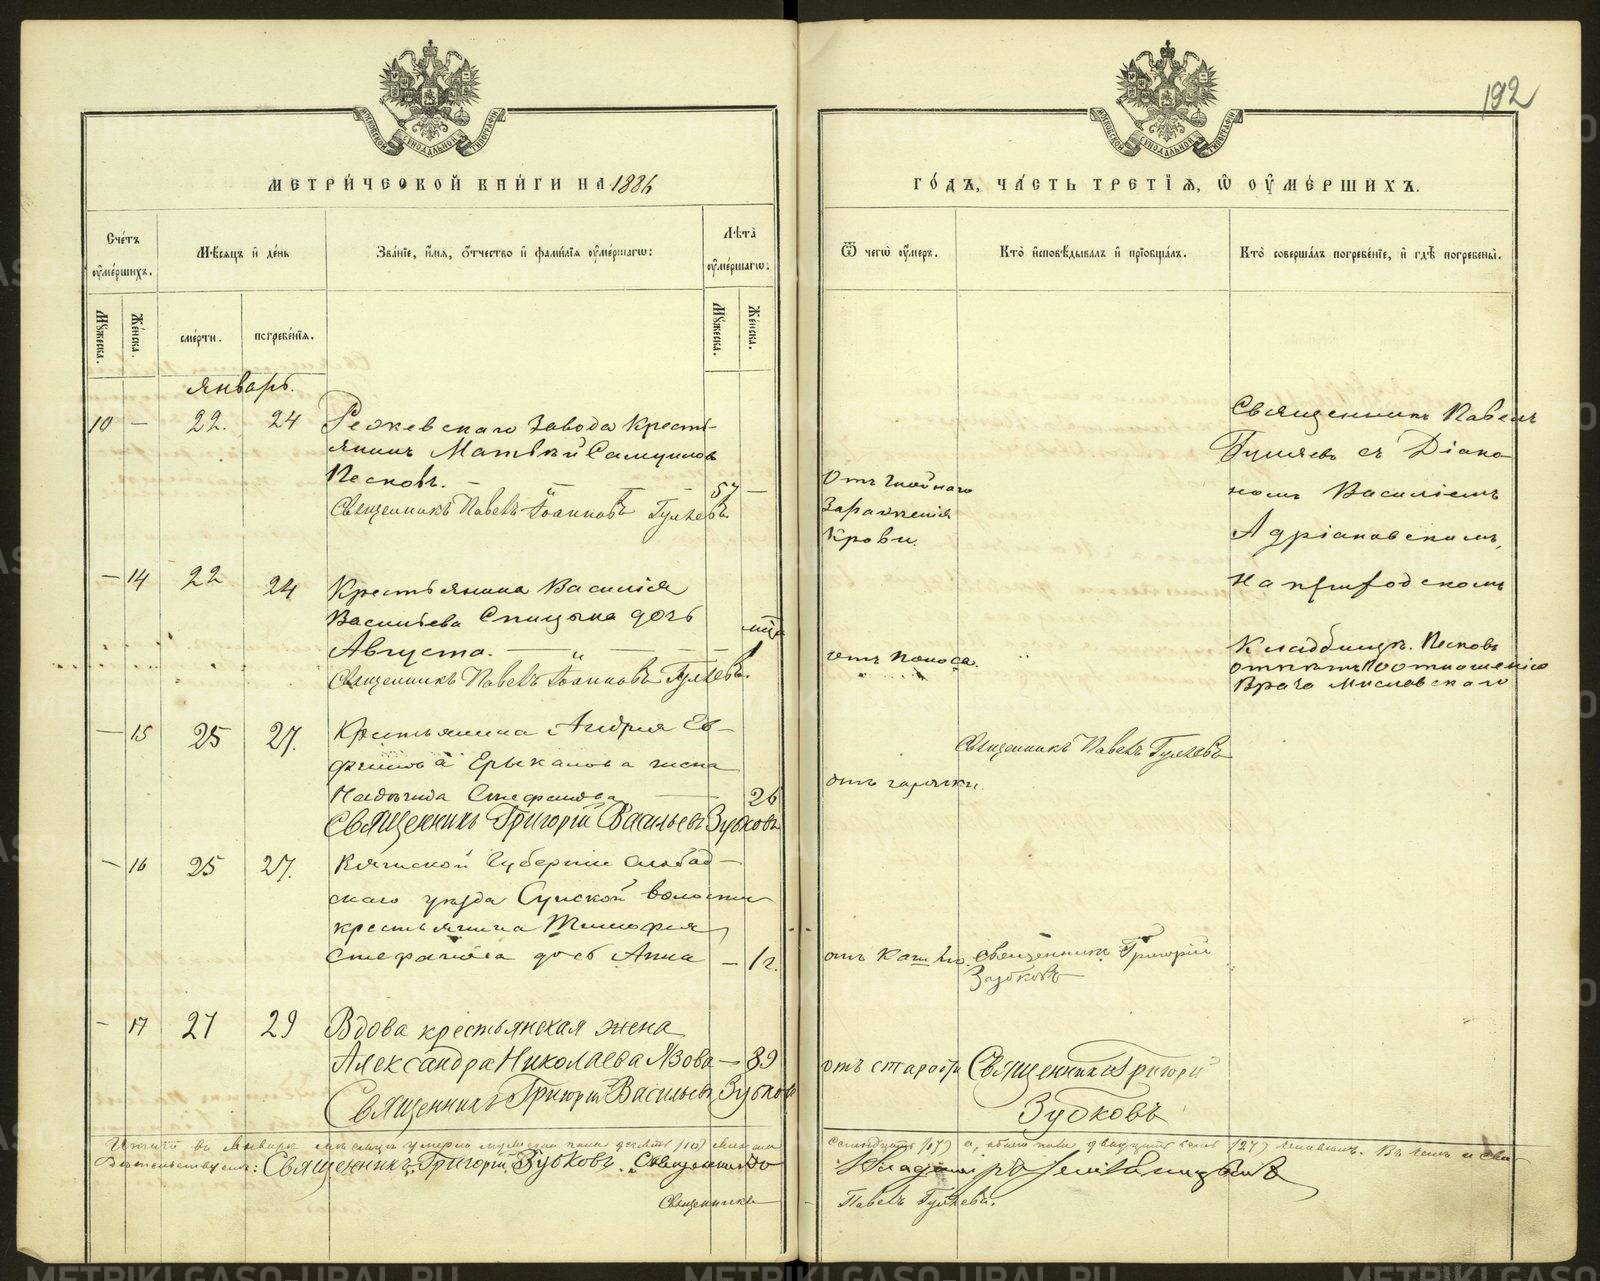 192
МЕТРИ́ЧЕСКОЙ КНИ́ГИ НА 1886
ГО́ДЪ, ЧА́СТЬ ТРЕТІѦ, Ѡ ОУМЕ́РШИХЪ.
Сче́тъ оуме́ршихъ.
Мѣ́сяцъ и де́нь
Зва́ніе, и́мя, о́тчество и фами́лія оуме́ршагѡ:
Лѣта̀ оуме́ршагѡ:
Ѿ чегѡ̀ оу́меръ.
Кто̀ исповѣ́дывалъ и пріобща́лъ.
Кто̀ соверша́лъ погребе́ніе, и гдѣ̀ погребены̀.
Му́жеска.
Же́нска.
сме́рти.
погребе́нія.
Му́жеска.
Же́нска.
Январь.
10 — 22. 24 Режевскаго завода кресть-
янинъ Матвѣй Самуиловъ
Песковъ. — 57 —
Священникъ Павелъ Іоанновъ Гуляевъ
Отъ гнойнаго
зараженія
крови.
Священникъ Павелъ
Гуляевъ съ Діако
номъ Василіемъ
Адріановскимъ,
на приходскомъ
кладбищѣ. Песковъ
отпѣтъ по отношенію
врача Мисловскаго
— 14 22 24 Крестьянина Василія
Васильева Спицына дочь
Августа. — „ — мца 1
Священникъ Павелъ Іоанновъ Гуляевъ.
отъ поноса.
— 15 25 27. Крестьянина Андрея Ев-
фимова Ерыкалова жена
Надежда Стефанова — 26
Священникъ Григорій Васильевъ Зубковъ
отъ горячки.
Священникъ Павелъ Гуляевъ
— 16 25 27. Вятской Губерніи Слобод-
скаго уѣзда Сунской волости
крестьянина Тимофея
Стефанова дочь Анна — 1 г.
отъ кашля.
Священникъ Григорій
Зубковъ
— 17 27 29 Вдова крестьянская жена
Александра Николаева Язова — 89
Священникъ Григорій Васильевъ Зубковъ
отъ старости
Священникъ Григорій
Зубковъ
Итого въ Январѣ мѣсяцѣ умерло мужескаго пола десять (10) женска
семнадцать (17) а, обоего пола двадцать семь (27) человѣкъ. Въ чемъ и сви-
дѣтельствуемъ: Священникъ Григорій Зубковъ. Священникъ
Священникъ
Павелъ Гуляевъ.